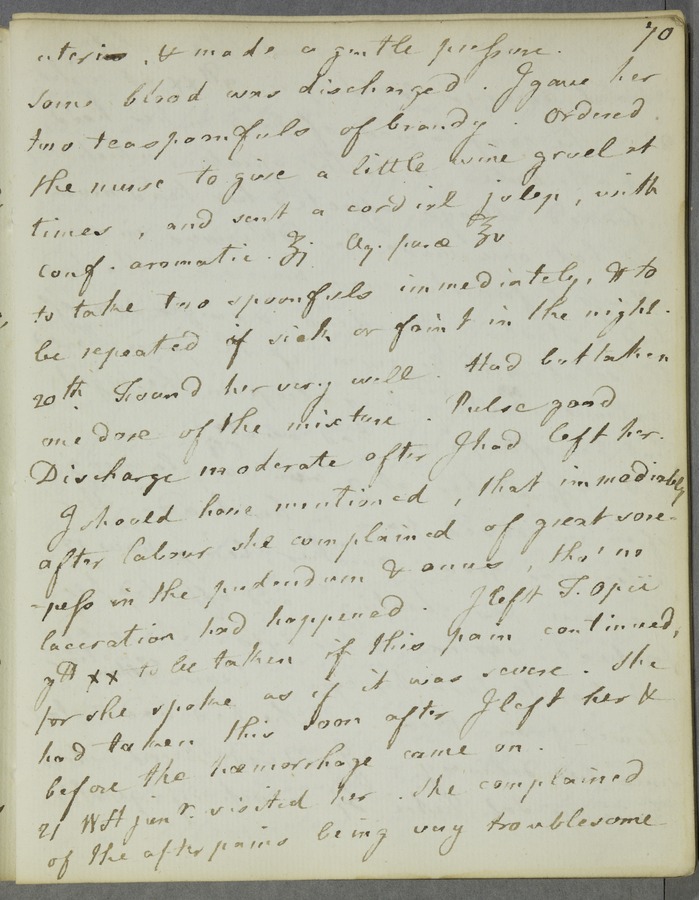 70
uterus, & made a gentle pressure.
Some blood was discharged. I gave her
two teaspoonfuls of brandy. Ordered
the nurse to give a little wine gruel at
times, and sent a cordial julep, with
conf. aromatic. ʒj Aq. puræ ℥v
to take two spoonfuls immediately, & to
be repeated if sick or faint in the night.
20th Found her very well. Had but taken
one dose of the mixture. Pulse good
Discharge moderate after I had left her.
I should have mentioned, that immediately
after labour she complained of great sore-
-ness in the pudendum & anus, tho' no
laceration had happened. I left T. Opii
gtt xx to be taken if this pain continued,
for she spoke as if it was severe. She
had taken this soon after I left her &
before the hæmorrhage came on.
21 WH junr. visited her. She complained
of the afterpains being very troublesome